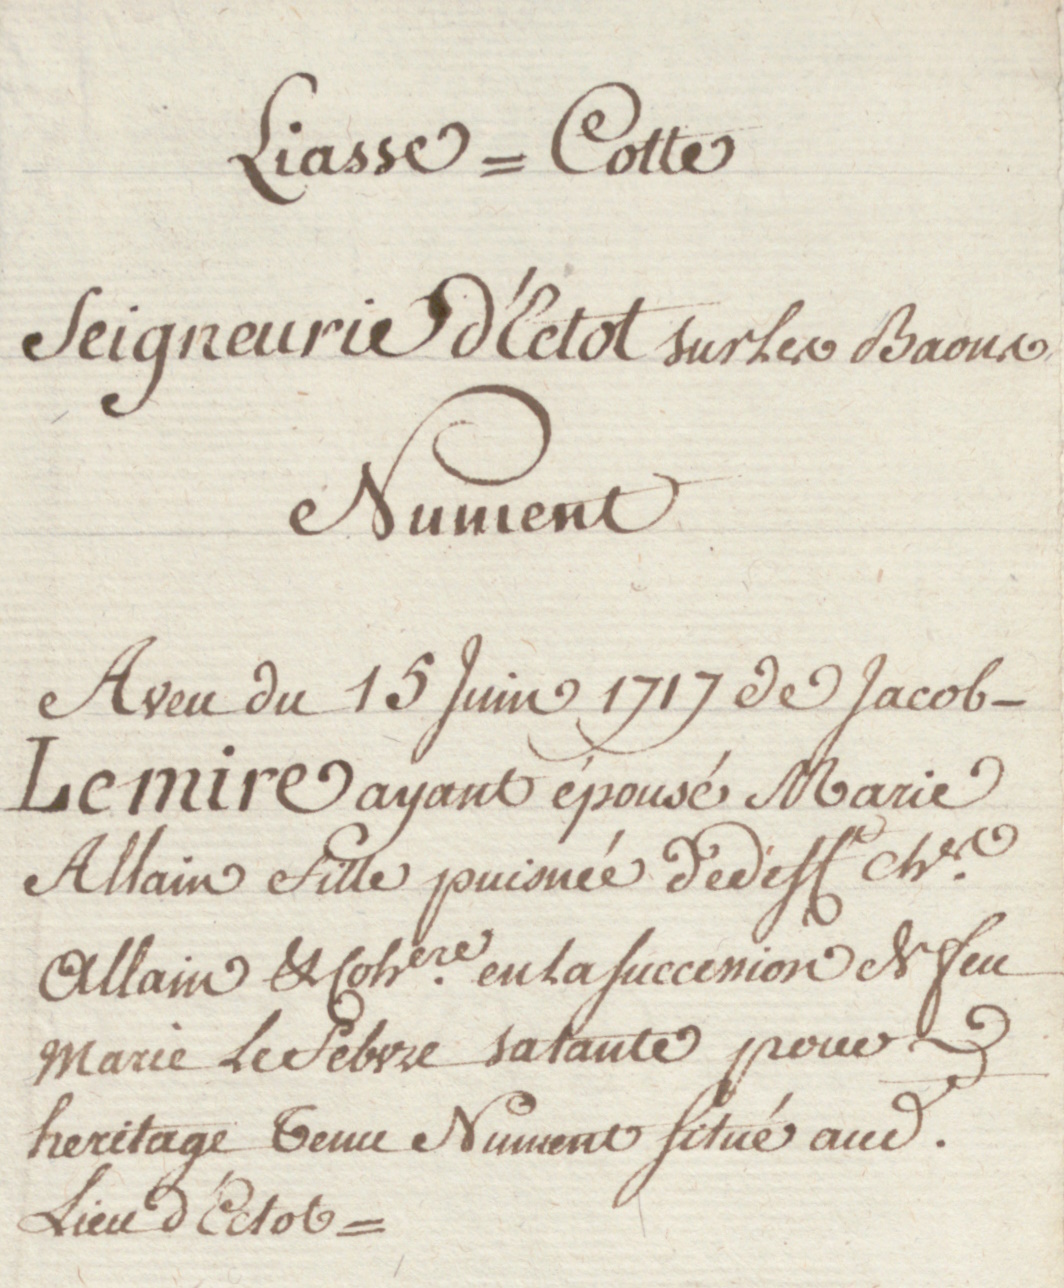 Liasse = Cotte
Seigneurie d'Ectot sur les Baons
Nument
Aveu du 15 Juin 1717 de Jacob-
Lemire ayant épousé Marie
Allain fille puisnée Chr.
Allain & Cohere. en la succession de feu
Marie le Febvre sa tante pour
heritage tenu Nument situé aud.
Lieu d'Ectot =